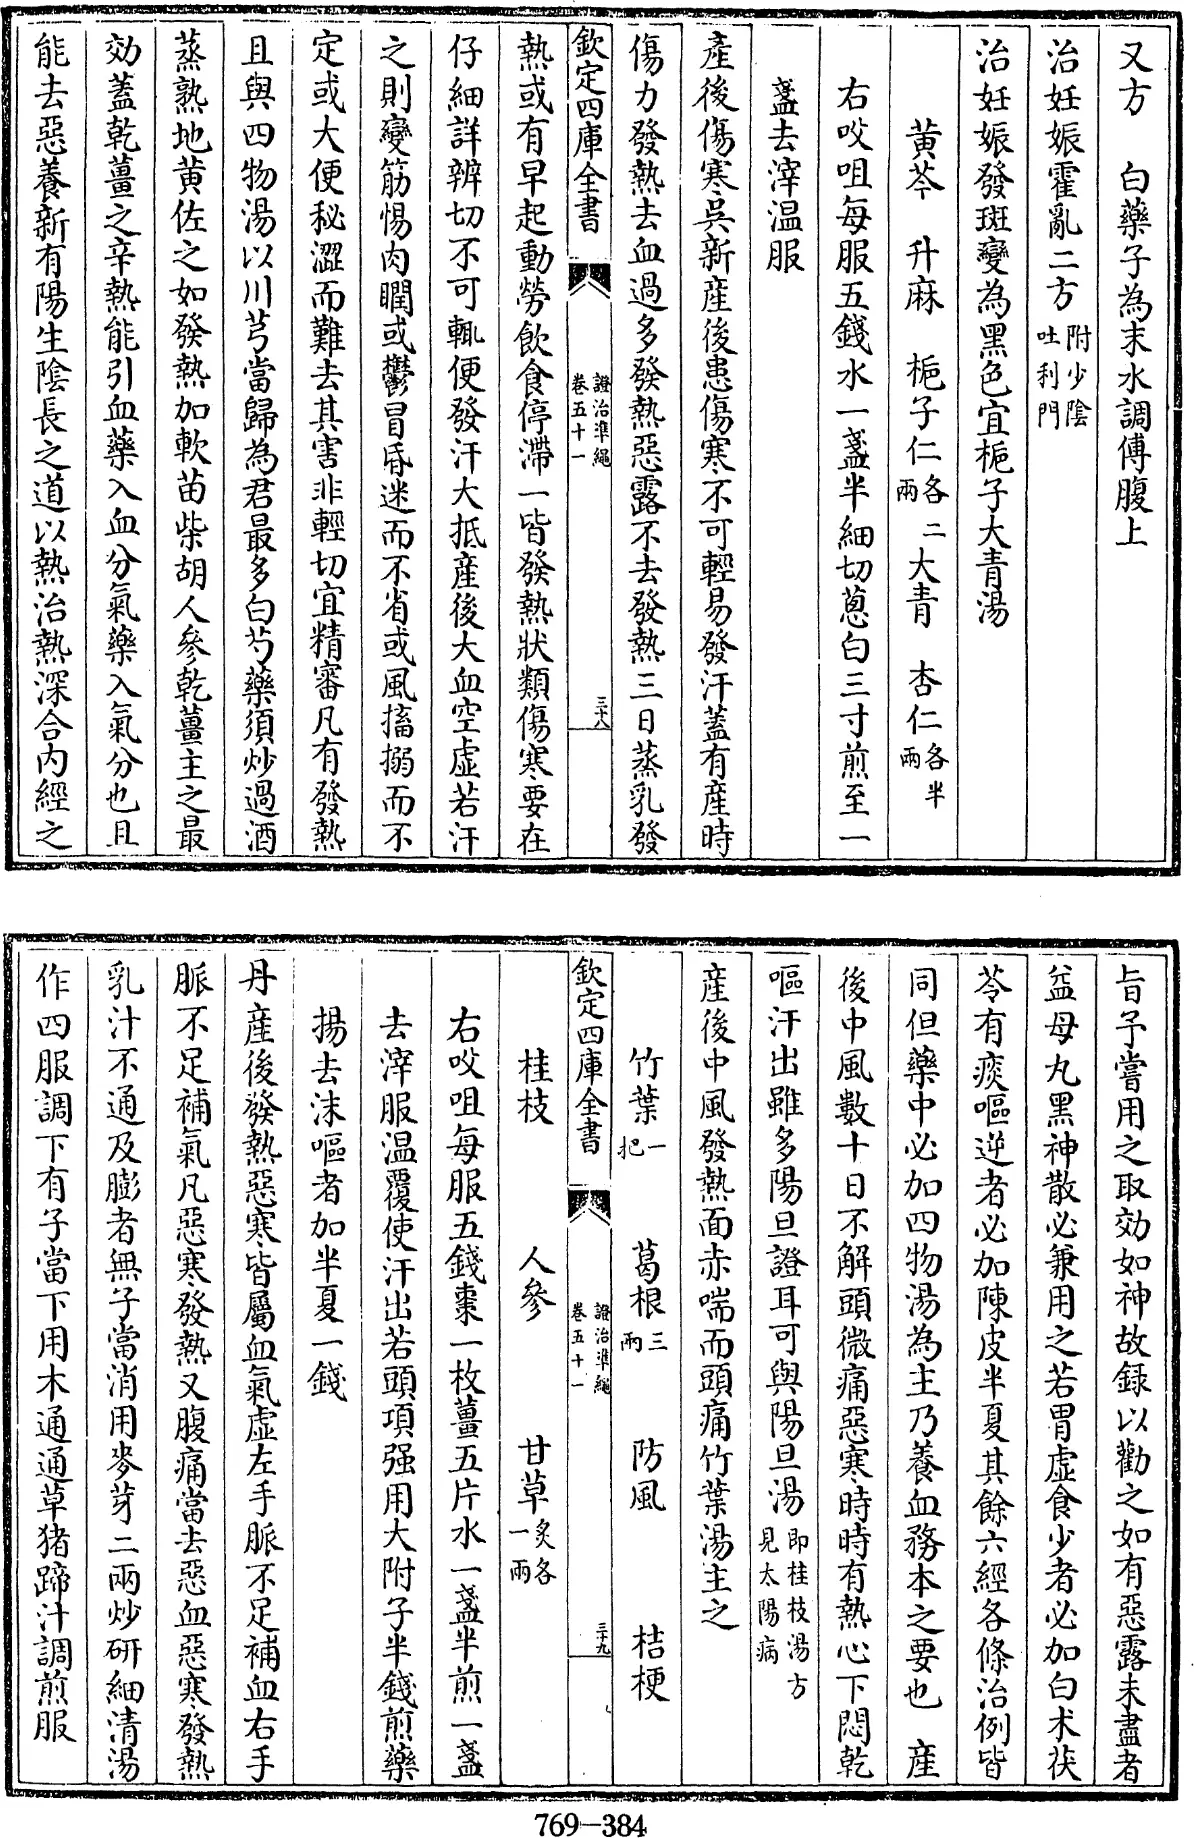 又方　白藥子為末水調傅腹上
治妊娠霍亂二方附少陰吐利門
治妊娠發斑變為黑色宜梔子大青湯
黄芩　升麻　梔子仁各二兩大青　杏仁各半兩
右㕮咀每服五錢水一盞半細切蔥白三寸煎至一
盞去滓温服
產後傷寒吳新産後患傷寒不可輕易發汗蓋有産時
傷力發熱去血過多發熱惡露不去發熱三日蒸乳發
欽定四庫全書
證治準繩
卷五十一
三十八
熱或有早起動勞飲食停滯一皆發熱狀類傷寒要在
仔細詳辨切不可輒便發汗大抵産後大血空虛若汗
之則變筋惕肉瞤或鬱冒昏迷而不省或風搐搦而不
定或大便秘澀而難去其害非輕切宜精審凡有發熱
且與四物湯以川芎當歸為君最多白芍藥須炒過酒
蒸熟地黄佐之如發熱加軟苗柴胡人參乾薑主之最
効蓋乾薑之辛熱能引血藥入血分氣藥入氣分也且
能去惡養新有陽生陰長之道以熱治熱深合内經之
旨予嘗用之取効如神故録以勸之如有惡露未盡者
益母丸黑神散必兼用之若胃虛食少者必加白术茯
苓有痰嘔逆者必加陳皮半夏其餘六經各條治例皆
同但藥中必加四物湯為主乃養血務本之要也　産
後中風數十日不解頭微痛惡寒時時有熱心下悶乾
嘔汗出雖多陽旦證耳可與陽旦湯即桂枝湯方見太陽病
産後中風發熱面赤喘而頭痛竹葉湯主之
竹葉一把　葛根三兩　防風　桔梗
欽定四庫全書
證治準繩
卷五十一
三十九
桂枝　人參　甘草炙各一兩
右㕮咀每服五錢棗一枚薑五片水一盞半煎一盞
去滓服温覆使汗出若頭項强用大附子半錢煎藥
揚去沫嘔者加半夏一錢
丹産後發熱惡寒皆屬血氣虛左手脈不足補血右手
脈不足補氣凡惡寒發熱又腹痛當去惡血惡寒發熱
乳汁不通及膨者無子當消用麥芽二兩炒研細清湯
作四服調下有子當下用木通通草猪蹄汁調煎服
769—384